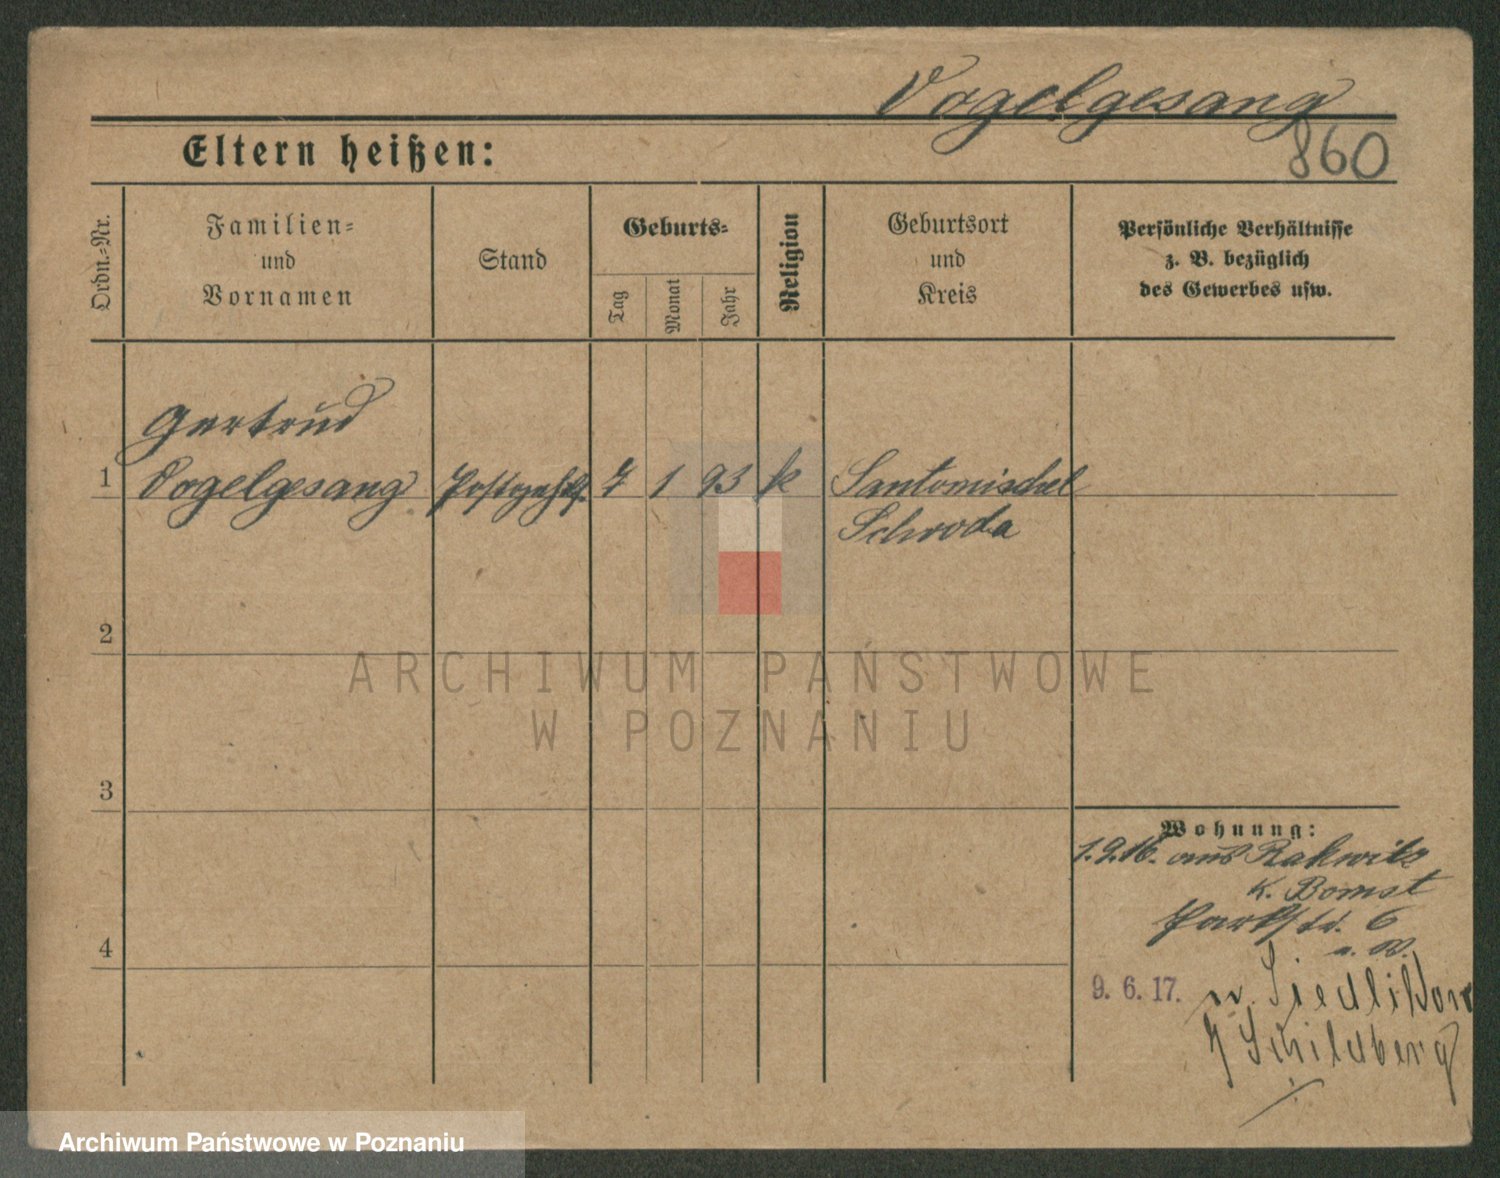 Vogelgesang
860
Eltern heißen:
Ordn.-Nr.
Familien-
und
Vornamen
Stand
Geburts-
Tag
Monat
Jahr
Religion
Geburtsort
und
Kreis
Persönliche Verhältnisse
z. B. bezüglich
des Gewerbes usw.
Gertrud
1 Vogelgesang Postgehilf. 7 1 93 k Santomischel
Schroda
2
3
4
Wohnung:
1.9.16. aus Rakwitz
K. Bomst
Parkstr. 6
a. W.
9. 6. 17. n. Siedlikow
Schildberg
ARCHIWUM PAŃSTWOWE
W POZNANIU
Archiwum Państwowe w Poznaniu